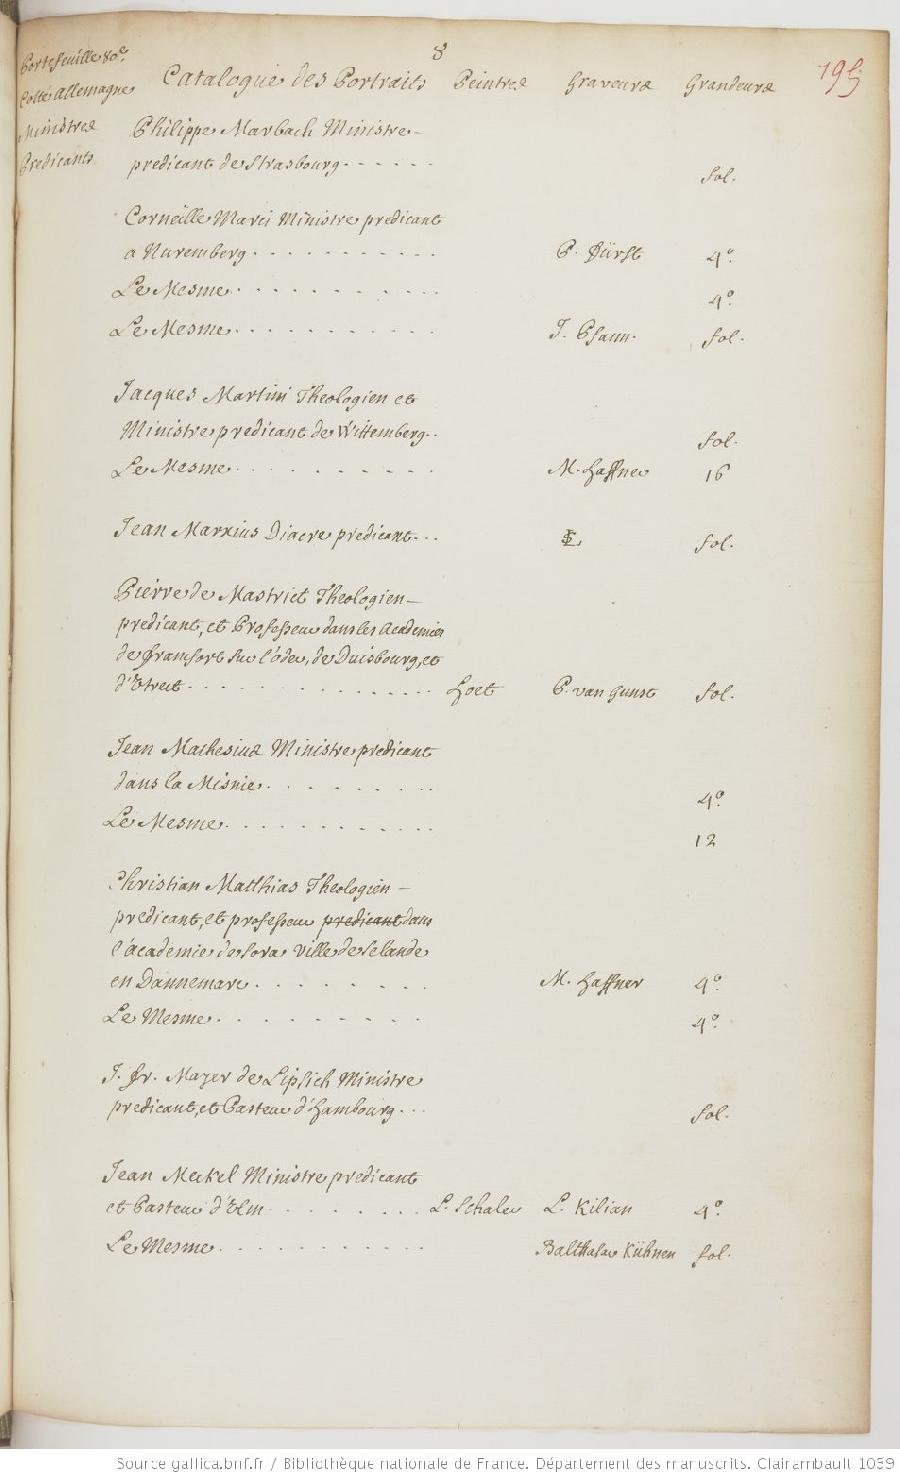 8
195
Portefeuille 80e.
Cotté Allemagne
Ministres
Predicants.
Catalogue des Portraits Peintres Graveurs Grandeurs
Philippe Marbach Ministre
predicant de Strasbourg...... fol.
Corneille Marci Ministre predicant
a Nuremberg........... P. Fürst 4o.
Le Mesme........... 4o.
Le Mesme........... J. Pfann. fol.
Jacques Martini Theologien et
Ministre predicant de Wittemberg.. fol.
Le Mesme......... M. Haffner 16
Jean Marxius Diacre predicant... fol.
Pierre de Mastrict Theologien
predicant, et Professeur dans les Academies
de Francfort sur l'Oder, de Duisbourg, et
d'Utrect............... Hoet P. van Gunst fol.
Jean Mathesius Ministre predicant
dans la Misnie......... 4o.
Le Mesme........... 12
Christian Matthias Theologien
predicant, et professeur predicant dans
l'Academie de Sora Ville de Selande
en Dannemarc........ M. Haffner 4o.
Le Mesme......... 4o.
J. Fr. Mayer de Lipsich Ministre
predicant, et Pasteur d'Hambourg... fol.
Jean Meckel Ministre predicant
et Pasteur d'Ulm........ L. Schaler L. Kilian 4o.
Le Mesme........... Balthasar Kühnen fol.
Source gallica.bnf.fr / Bibliothèque nationale de France. Département des manuscrits. Clairambault 1039